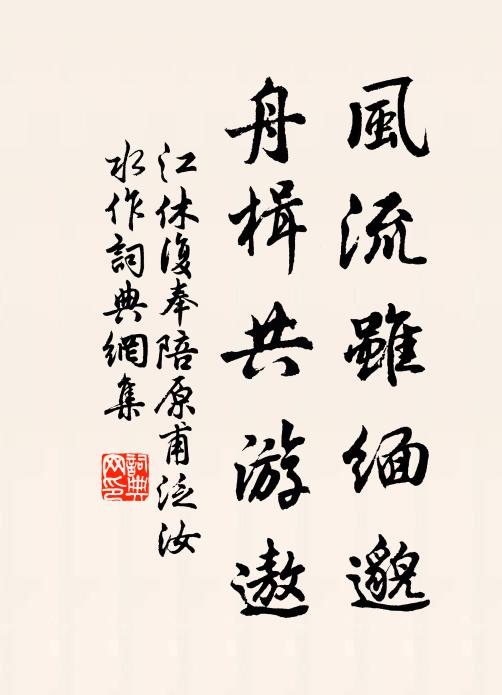 風流雖緬邈
舟楫共游遨
江休復奉陪原甫泛汝
水作詞典網集
詞典網印